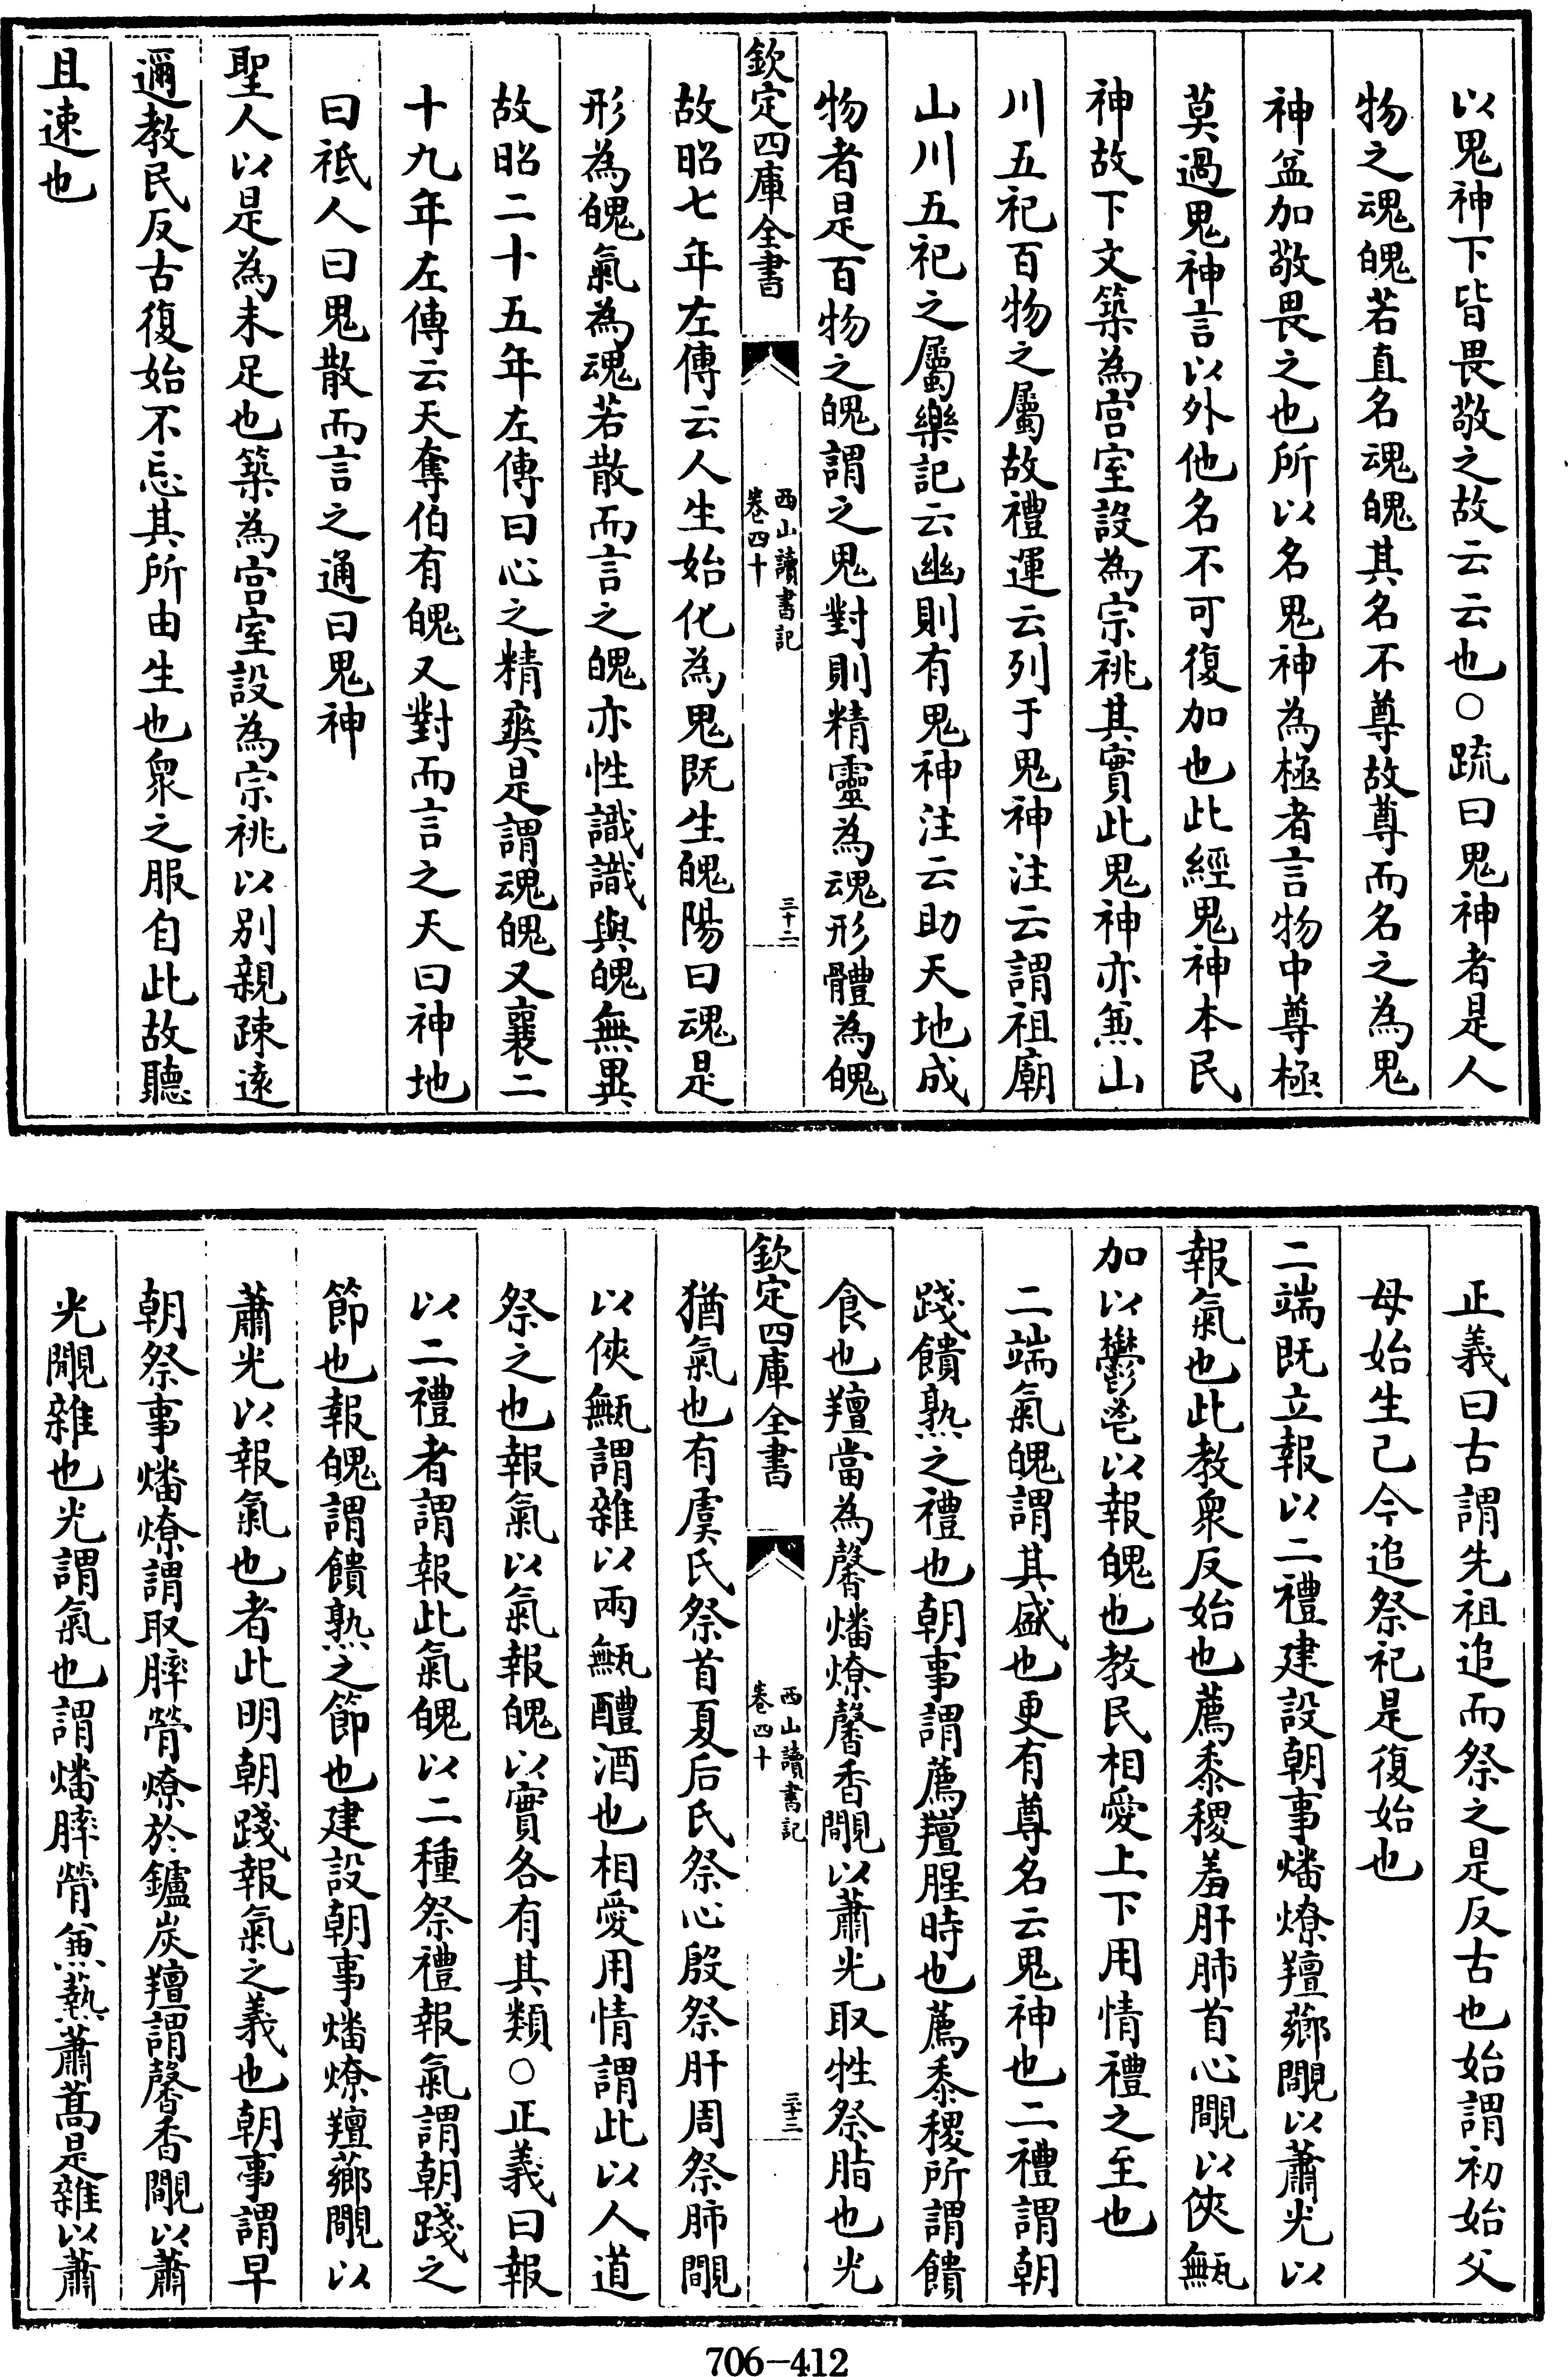 以鬼神下皆畏敬之故云云也○疏曰鬼神者是人
物之魂魄若直名魂魄其名不尊故尊而名之為鬼
神盆加敬畏之也所以名鬼神為極者言物中尊極
莫過鬼神言以外他名不可復加也此經鬼神本民
神故下文築為宫室設為宗祧其實此鬼神亦兼山
川五祀百物之屬故禮運云列于鬼神注云謂祖廟
山川五祀之屬樂記云幽則有鬼神注云助天地成
物者是百物之魄謂之鬼對則精靈為魂形體為魄
欽定四庫全書
西山讀書記
卷四十
三十二
故昭七年左傳云人生始化為鬼既生魄陽曰魂是
形為魄氣為魂若散而言之魄亦性識識與魄無異
故昭二十五年左傳曰心之精爽是謂魂魄又襄二
十九年左傳云天奪伯有魄又對而言之天曰神地
曰祗人曰鬼散而言之通曰鬼神
聖人以是為未足也築為宫室設為宗祧以别親疎遠
邇教民反古復始不忘其所由生也衆之服自此故聽
且速也
正義曰古謂先祖追而祭之是反古也始謂初始父
母始生己今追祭祀是復始也
二端既立報以二禮建設朝事燔燎羶薌覵以蕭光以
報氣也此教衆反始也薦黍稷羞肝肺首心覵以俠甒
加以鬱鬯以報魄也教民相愛上下用情禮之至也
二端氣魄謂其盛也更有尊名云鬼神也二禮謂朝
踐饋熟之禮也朝事謂薦羶腥時也薦黍稷所謂饋
食也羶當為馨燔燎馨香覵以蕭光取牲祭脂也光
欽定四庫全書
西山讀書記
卷四十
三十三
猶氣也有虞氏祭首夏后氏祭心殷祭肝周祭肺覵
以俠甒謂雜以兩甒醴酒也相愛用情謂此以人道
祭之也報氣以氣報魄以實各有其類○正義曰報
以二禮者謂報此氣魄以二種祭禮報氣謂朝踐之
節也報魄謂饋熟之節也建設朝事燔燎羶薌覵以
蕭光以報氣也者此明朝踐報氣之義也朝事謂早
朝祭事燔燎謂取膟膋燎於鑪炭羶謂馨香覵以蕭
光覵雜也光謂氣也謂燔膟膋兼爇蕭蒿是雜以蕭
706-412